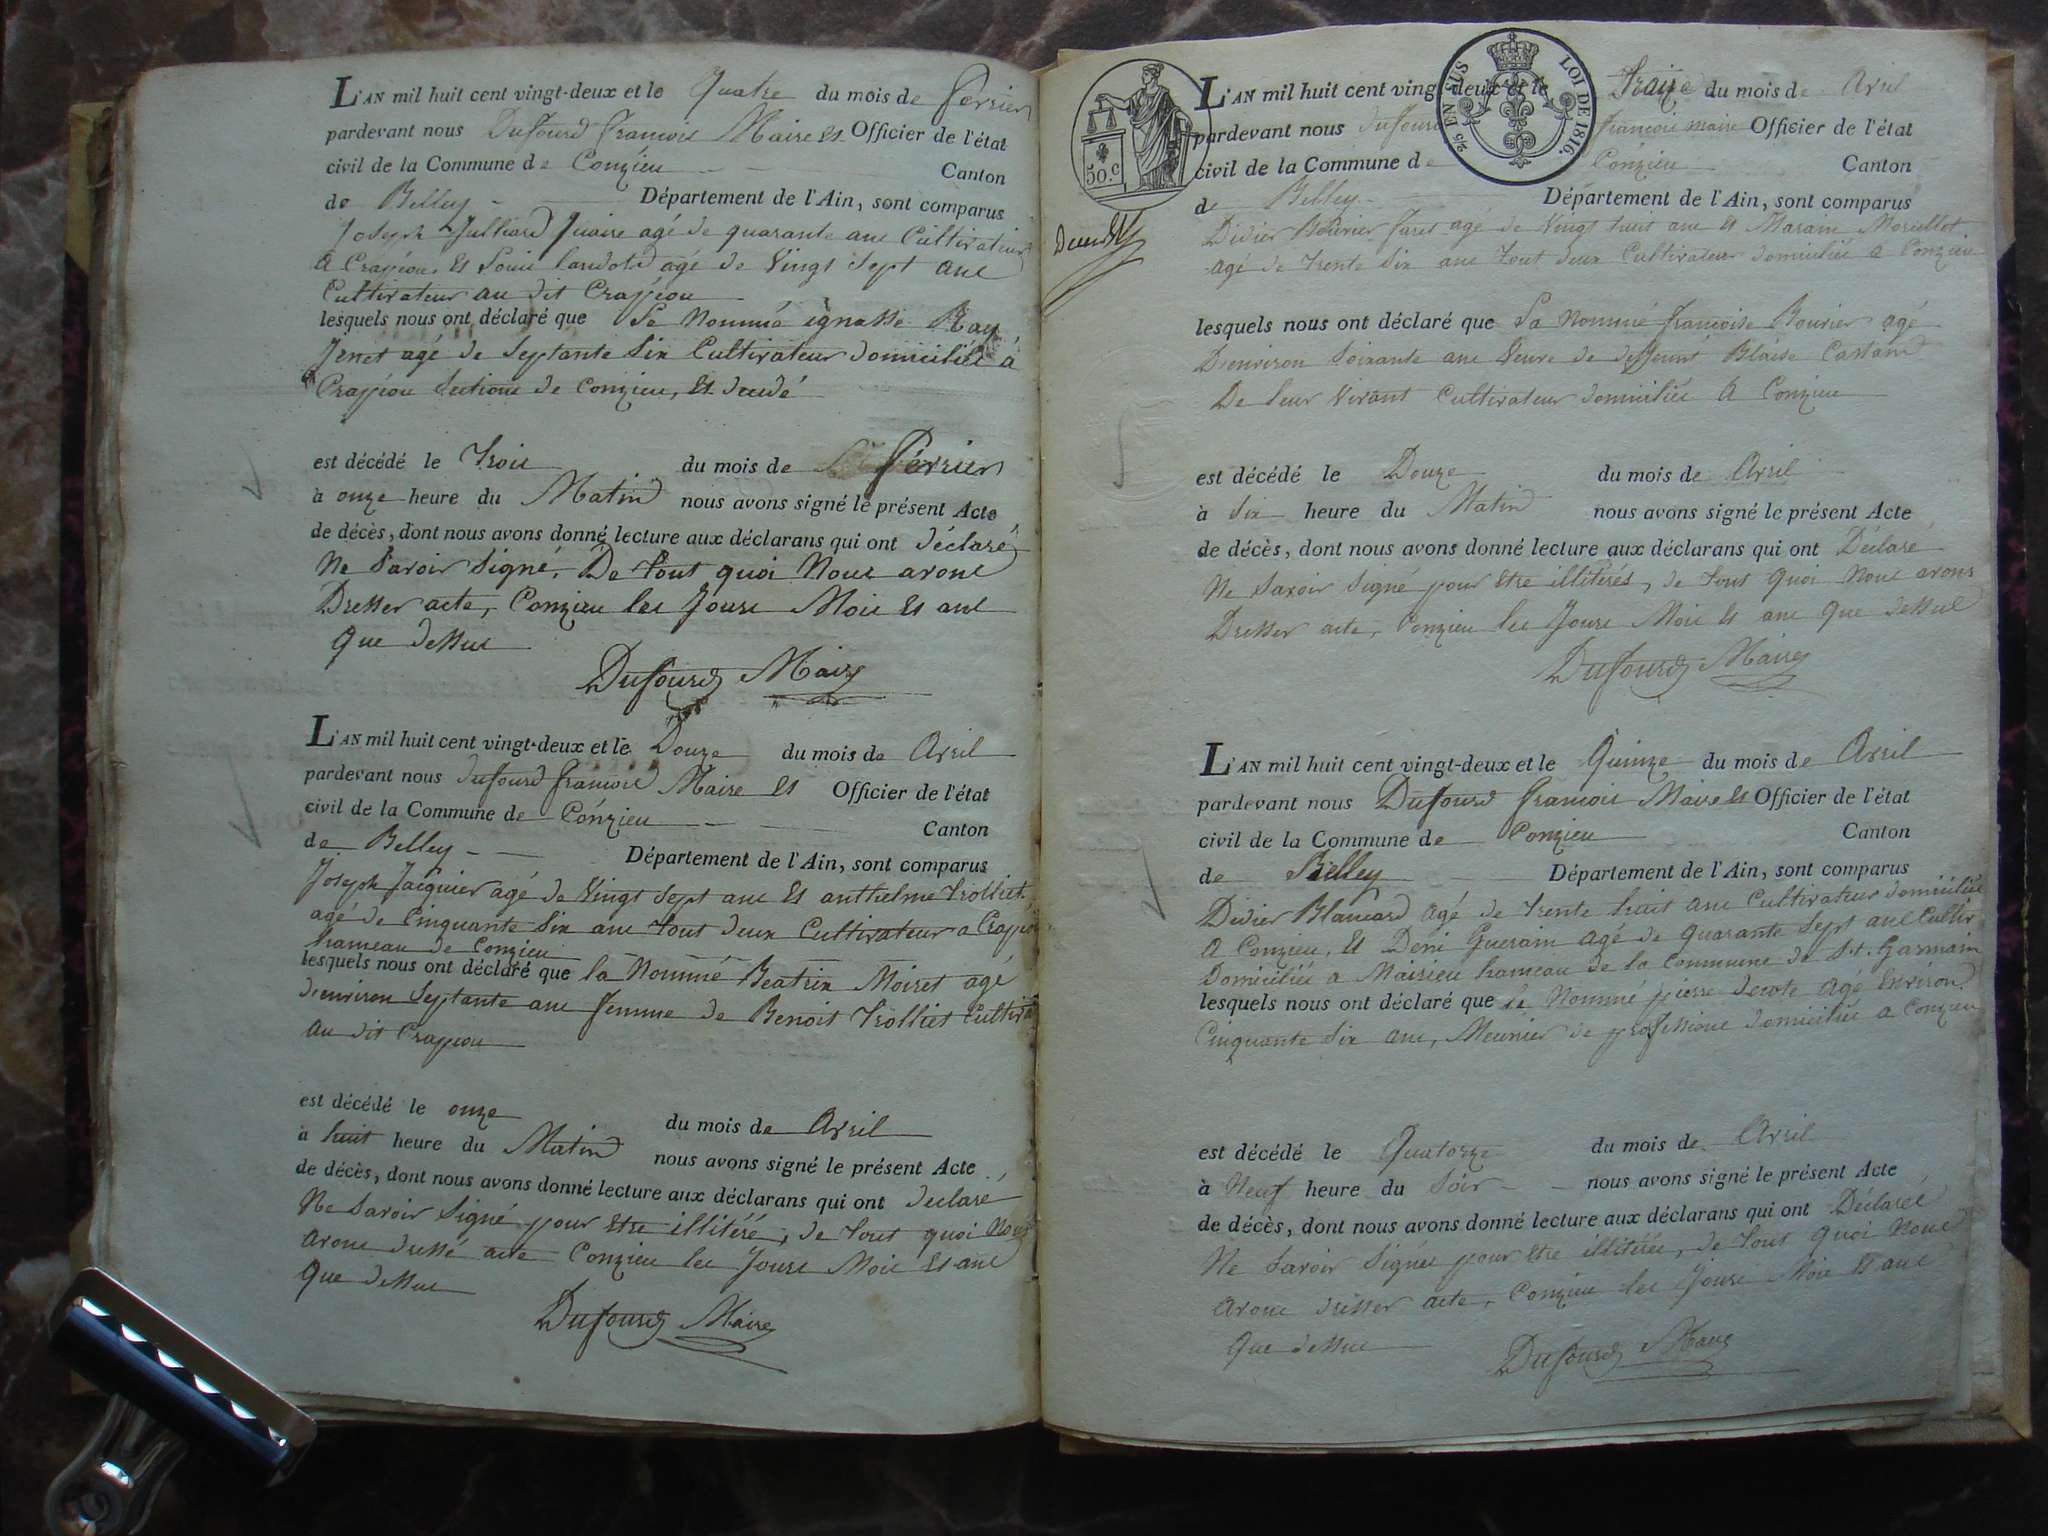 L'AN mil huit cent vingt-deux et le Quatre du mois de fevrier
pardevant nous Dufourd francois Maire et Officier de l'état
civil de la Commune de Conzieu Canton
de Belley Département de l'Ain, sont comparus
Joseph Julliard agé de quarante ans Cultivateur
a Crapéou et Louis agé de Vingt Sept ans
Cultivateur au dit Crapéou
lesquels nous ont déclaré que Le Nommé ignasse Ray
Jenet agé de Septante Six Cultivateur domicilié à
Crapéou Sections de Conzieu, et
est décédé le trois du mois de fevrier
à onze heure du Matin nous avons signé le présent Acte
de décès, dont nous avons donné lecture aux déclarans qui ont déclaré
Ne Savoir Signé. De tout quoi Nous avons
Dresser acte, Conzieu les Jours Mois et ans
que dessus
Dufourd Maire
L'AN mil huit cent vingt-deux et le Douze du mois de Avril
pardevant nous dufourd francois Maire et Officier de l'état
civil de la Commune de Conzieu Canton
de Belley Département de l'Ain, sont comparus
Joseph Jacquier agé de Vingt Sept ans et anthelme trolliet
agé de Cinquante Six ans tout deux Cultivateur a Crapéou
hameau de Conzieu
lesquels nous ont déclaré que la Nommé Beatrix Moiret agé
d'environ Septante ans femme de Benoit trolliet Cultiv
au dit Crapeou
est décédé le onze du mois de Avril
à huit heure du Matin nous avons signé le présent Acte
de décès, dont nous avons donné lecture aux déclarans qui ont declaré
Ne Savoir Signé pour etre illitéré, de tout quoi Nous
avons dressé acte Conzieu les Jours Mois et ans
que dessus
Dufourd Maire
50.c
2/5 EN SUS LOI DE 1816.
L'AN mil huit cent vingt-deux et le traize du mois de Avril
pardevant nous dufourd francois maire Officier de l'état
civil de la Commune de Conzieu Canton
de Belley Département de l'Ain, sont comparus
Didier Bouvier furet agé de Vingt huit ans et Marain Morellet
agé de trente Six ans tout deux Cultivateur domiciliés a Conzieu
lesquels nous ont déclaré que La Nommé francoise Bouvier agé
D'environ Soixante ans Veuve de deffeunt Blaise Castain
De leur Vivant Cultivateur domiciliés A Conzieu
est décédé le Douze du mois de Avril
à Six heure du Matin nous avons signé le présent Acte
de décès, dont nous avons donné lecture aux déclarans qui ont Déclaré
Ne Savoir Signé pour etre illitérés, de tout quoi Nous avons
Dresser acte, Conzieu les Jours Mois et ans que dessus
Dufourd Maire
L'AN mil huit cent vingt-deux et le Quinze du mois de Avril
pardevant nous Dufourd francois Maire et Officier de l'état
civil de la Commune de Conzieu Canton
de Belley Département de l'Ain, sont comparus
Didier Blancard agé de trente huit ans Cultivateur domicilié
a Conzieu, et Deni Guerain agé de quarante Sept ans Cultiv
Domiciliés a Maisieu hameau de la Commune de St. Garmain
lesquels nous ont déclaré que le Nommé pierre decote agé Environ
Cinquante Six ans, Meunier de professions domicilié a Conzieu
est décédé le Quatorze du mois de Avril
à Neuf heure du Soir nous avons signé le présent Acte
de décès, dont nous avons donné lecture aux déclarans qui ont Déclaréé
Ne Savoir Signés pour etre illitérés, de tout quoi Nous
avons dresser acte, Conzieu les Jours Mois et ans
que dessus
Dufourd Maire